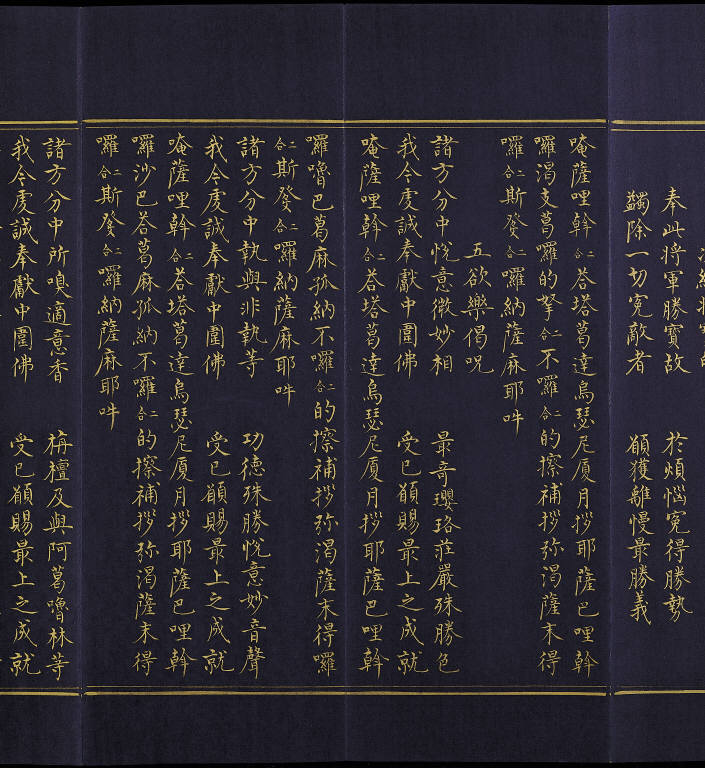 奉此將軍勝寶故 於煩惱冤得勝勢
蠲除一切冤敵者 願獲離慢最勝義
唵薩哩斡二合荅塔葛達烏瑟尼厦月拶耶薩巴哩斡
囉渴支葛囉的拏二合不囉二合的擦補拶弥渴薩末得
囉二合斯發二合囉納薩麻耶吽
五欲樂偈呪
諸方分中悅意微妙相 最竒瓔珞莊嚴殊勝色
我今虔誠奉獻中圍佛 受已願賜最上之成就
唵薩哩斡二合荅塔葛達烏瑟尼厦月拶耶薩巴哩斡
囉嚕巴葛麻孤納不囉二合的擦補拶弥渴薩末得囉
二合斯發二合囉納薩麻耶吽
諸方分中執與非執等 功德殊勝悅意妙音聲
我今虔誠奉獻中圍佛 受已願賜最上之成就
唵薩哩斡二合荅塔葛達烏瑟尼厦月拶耶薩巴哩斡
囉沙巴荅葛麻孤納不囉二合的擦補拶弥渴薩末得
囉二合斯發二合囉納薩麻耶吽
諸方分中所嗅適意香 栴檀及與阿葛嚕林等
我今虔誠奉獻中圍佛 受已願賜最上之成就